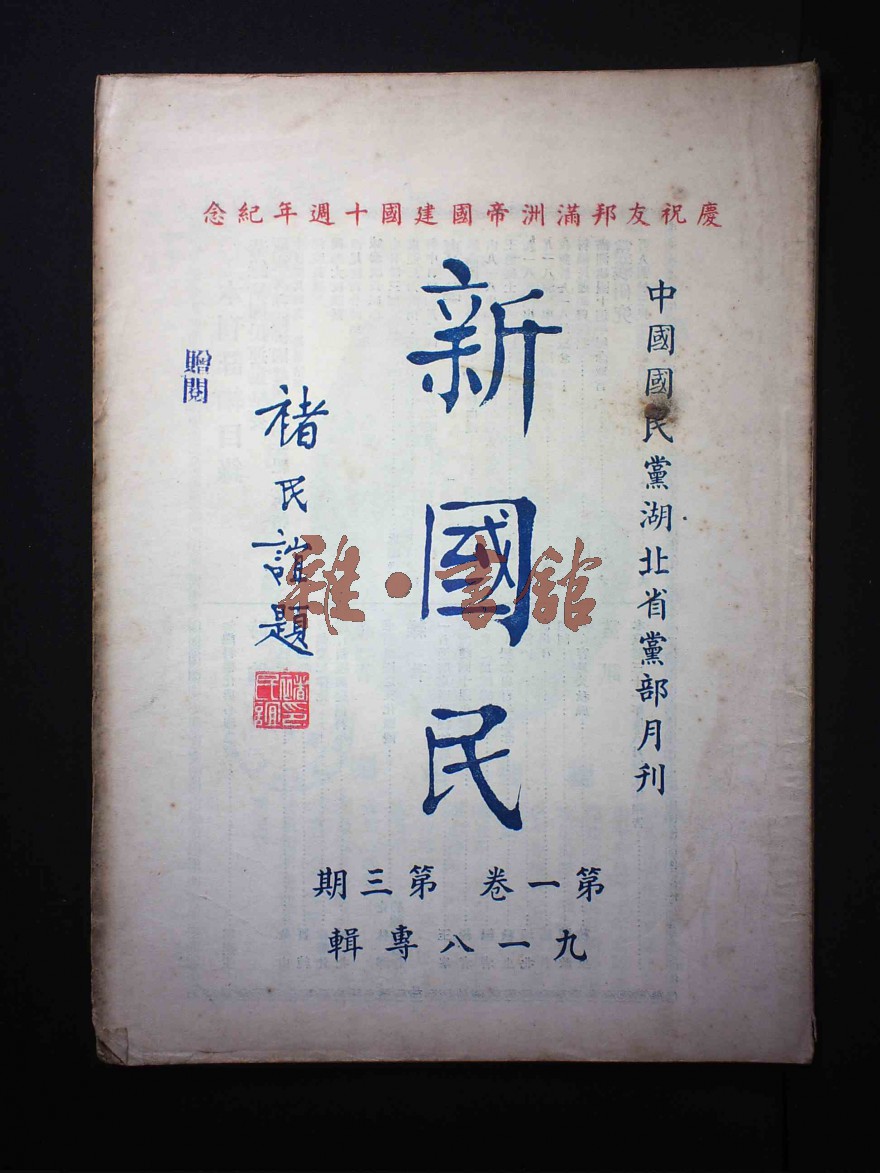 慶祝友邦滿洲帝國建國十週年紀念
中國國民黨湖北省黨部月刊
新國民
褚民誼題
褚民誼印
贈閱
第一卷 第三期
九一八專輯
雜·書館